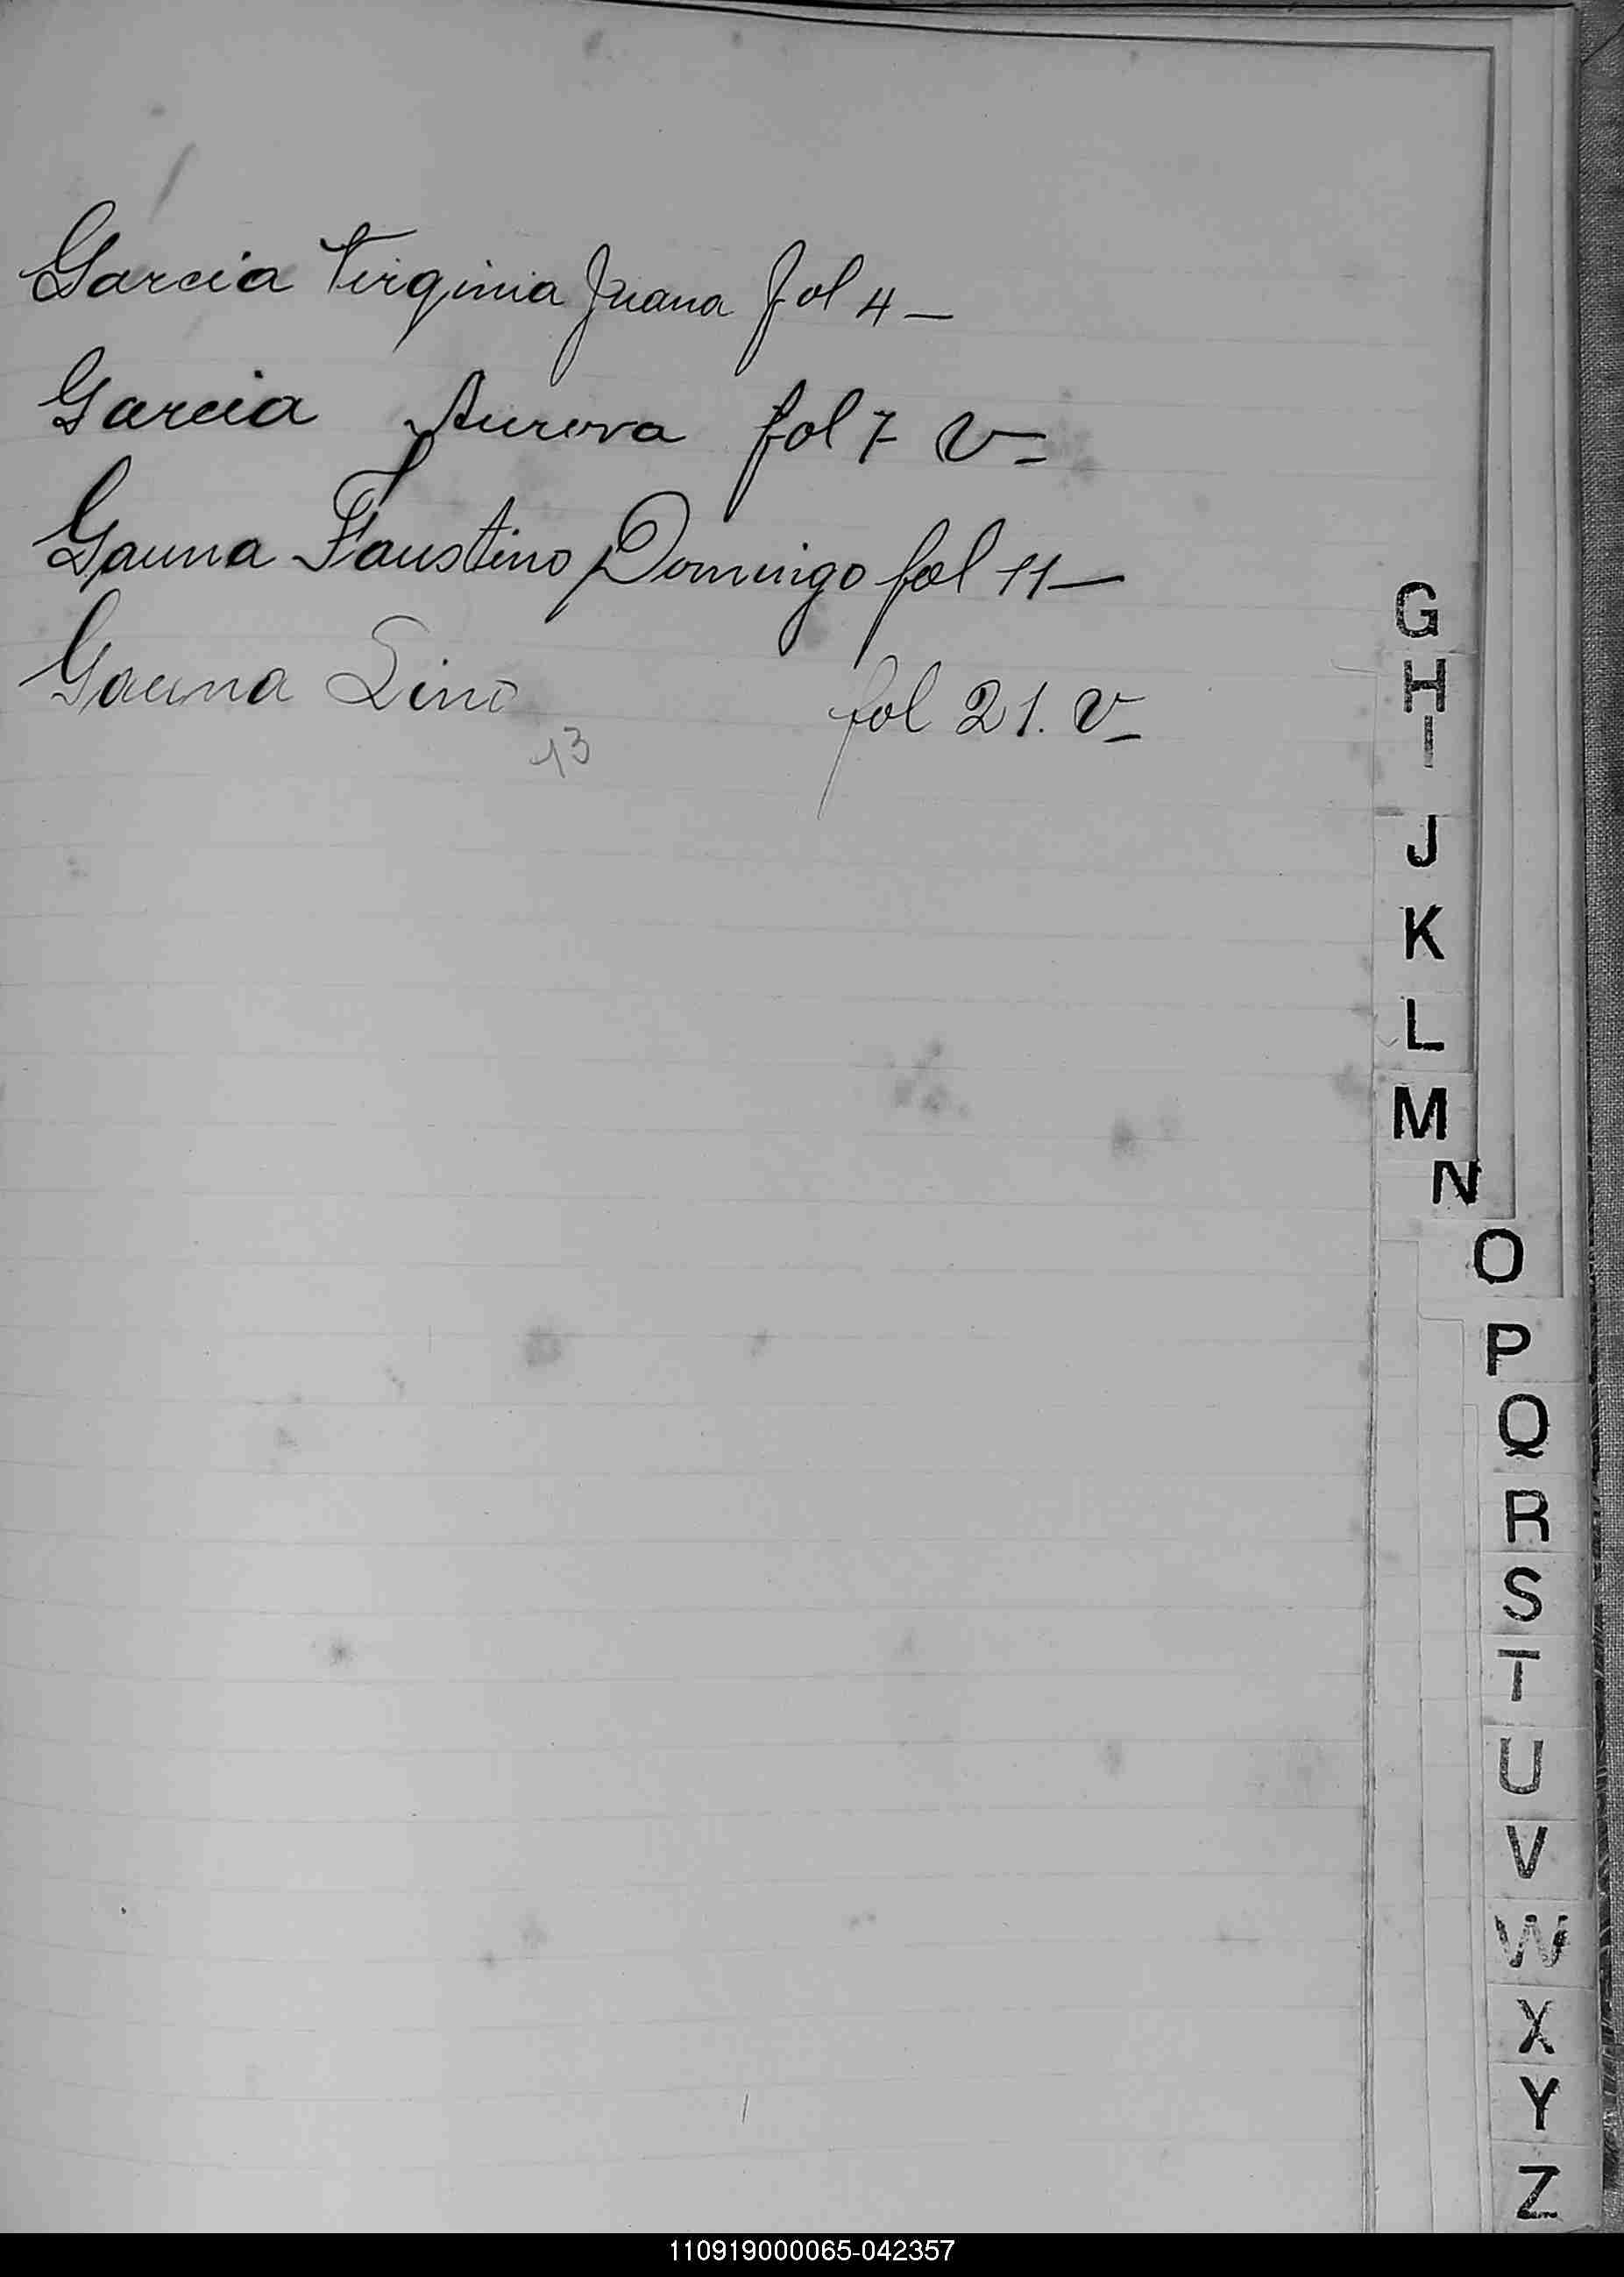 Garcia Virginia Juana fol 4 –
Garcia Aurora fol 7 V–
Gauna Faustino Domingo fol 11 –
Gauna Lino fol 21. V–
13
G
H
I
J
K
L
M
N
O
P
Q
R
S
T
U
V
W
X
Y
Z
110919000065-042357